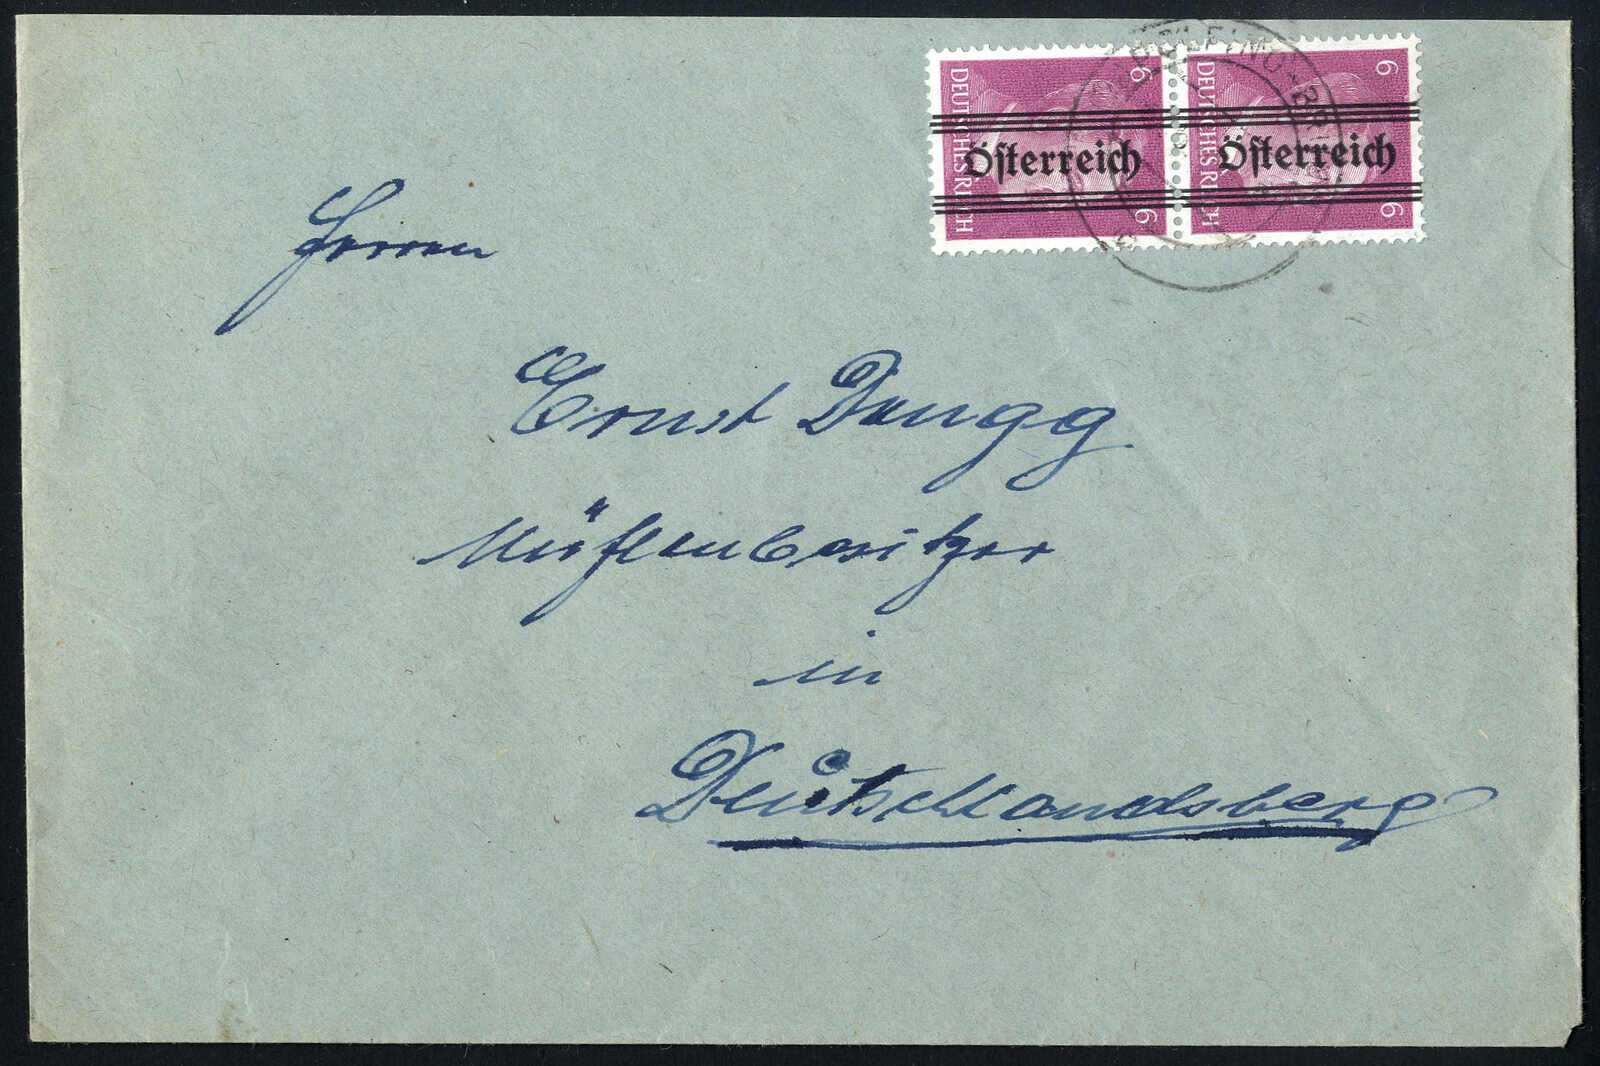 6 6
DEUTSCHES REICH
Österreich
6 6
DEUTSCHES REICH
Österreich
Herrn
Ernst Dengg
Mühlenbesitzer
in
Deutschlandsberg